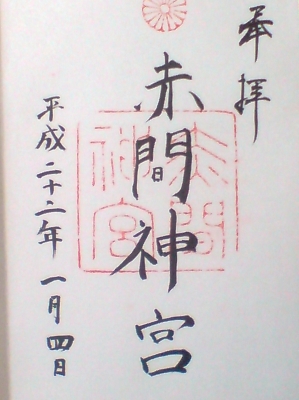 奉拝
赤間神宮
平成二十二年一月四日
赤間神宮